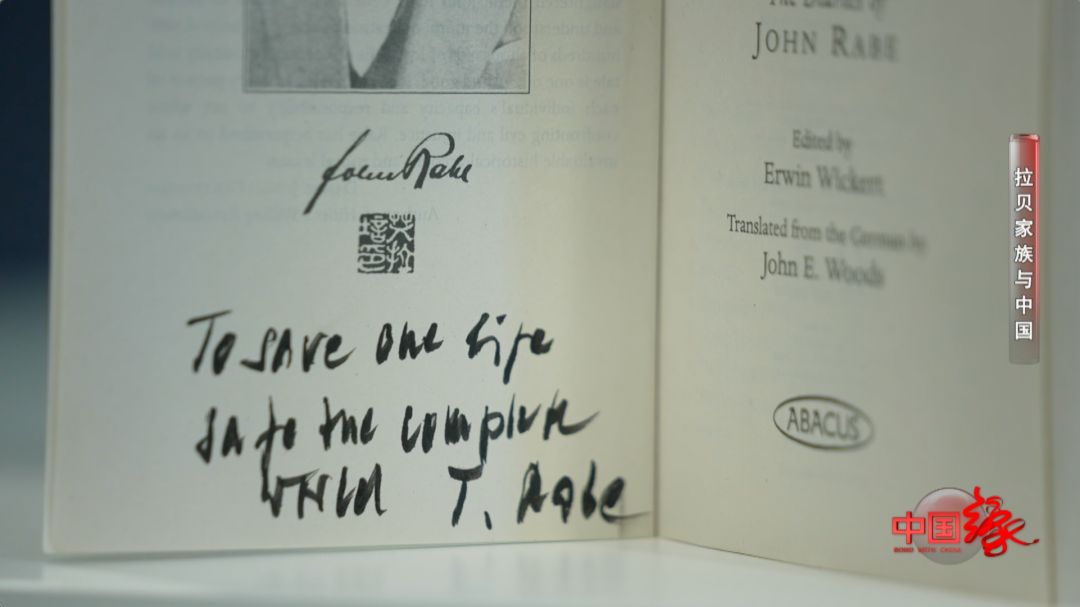 John Rabe
To save one life
safe the complete
world T. Rabe
The Diaries of
JOHN RABE
Edited by
Erwin Wickert
Translated from the German by
John E. Woods
ABACUS
拉贝家族与中国
中国缘
BOND WITH CHINA